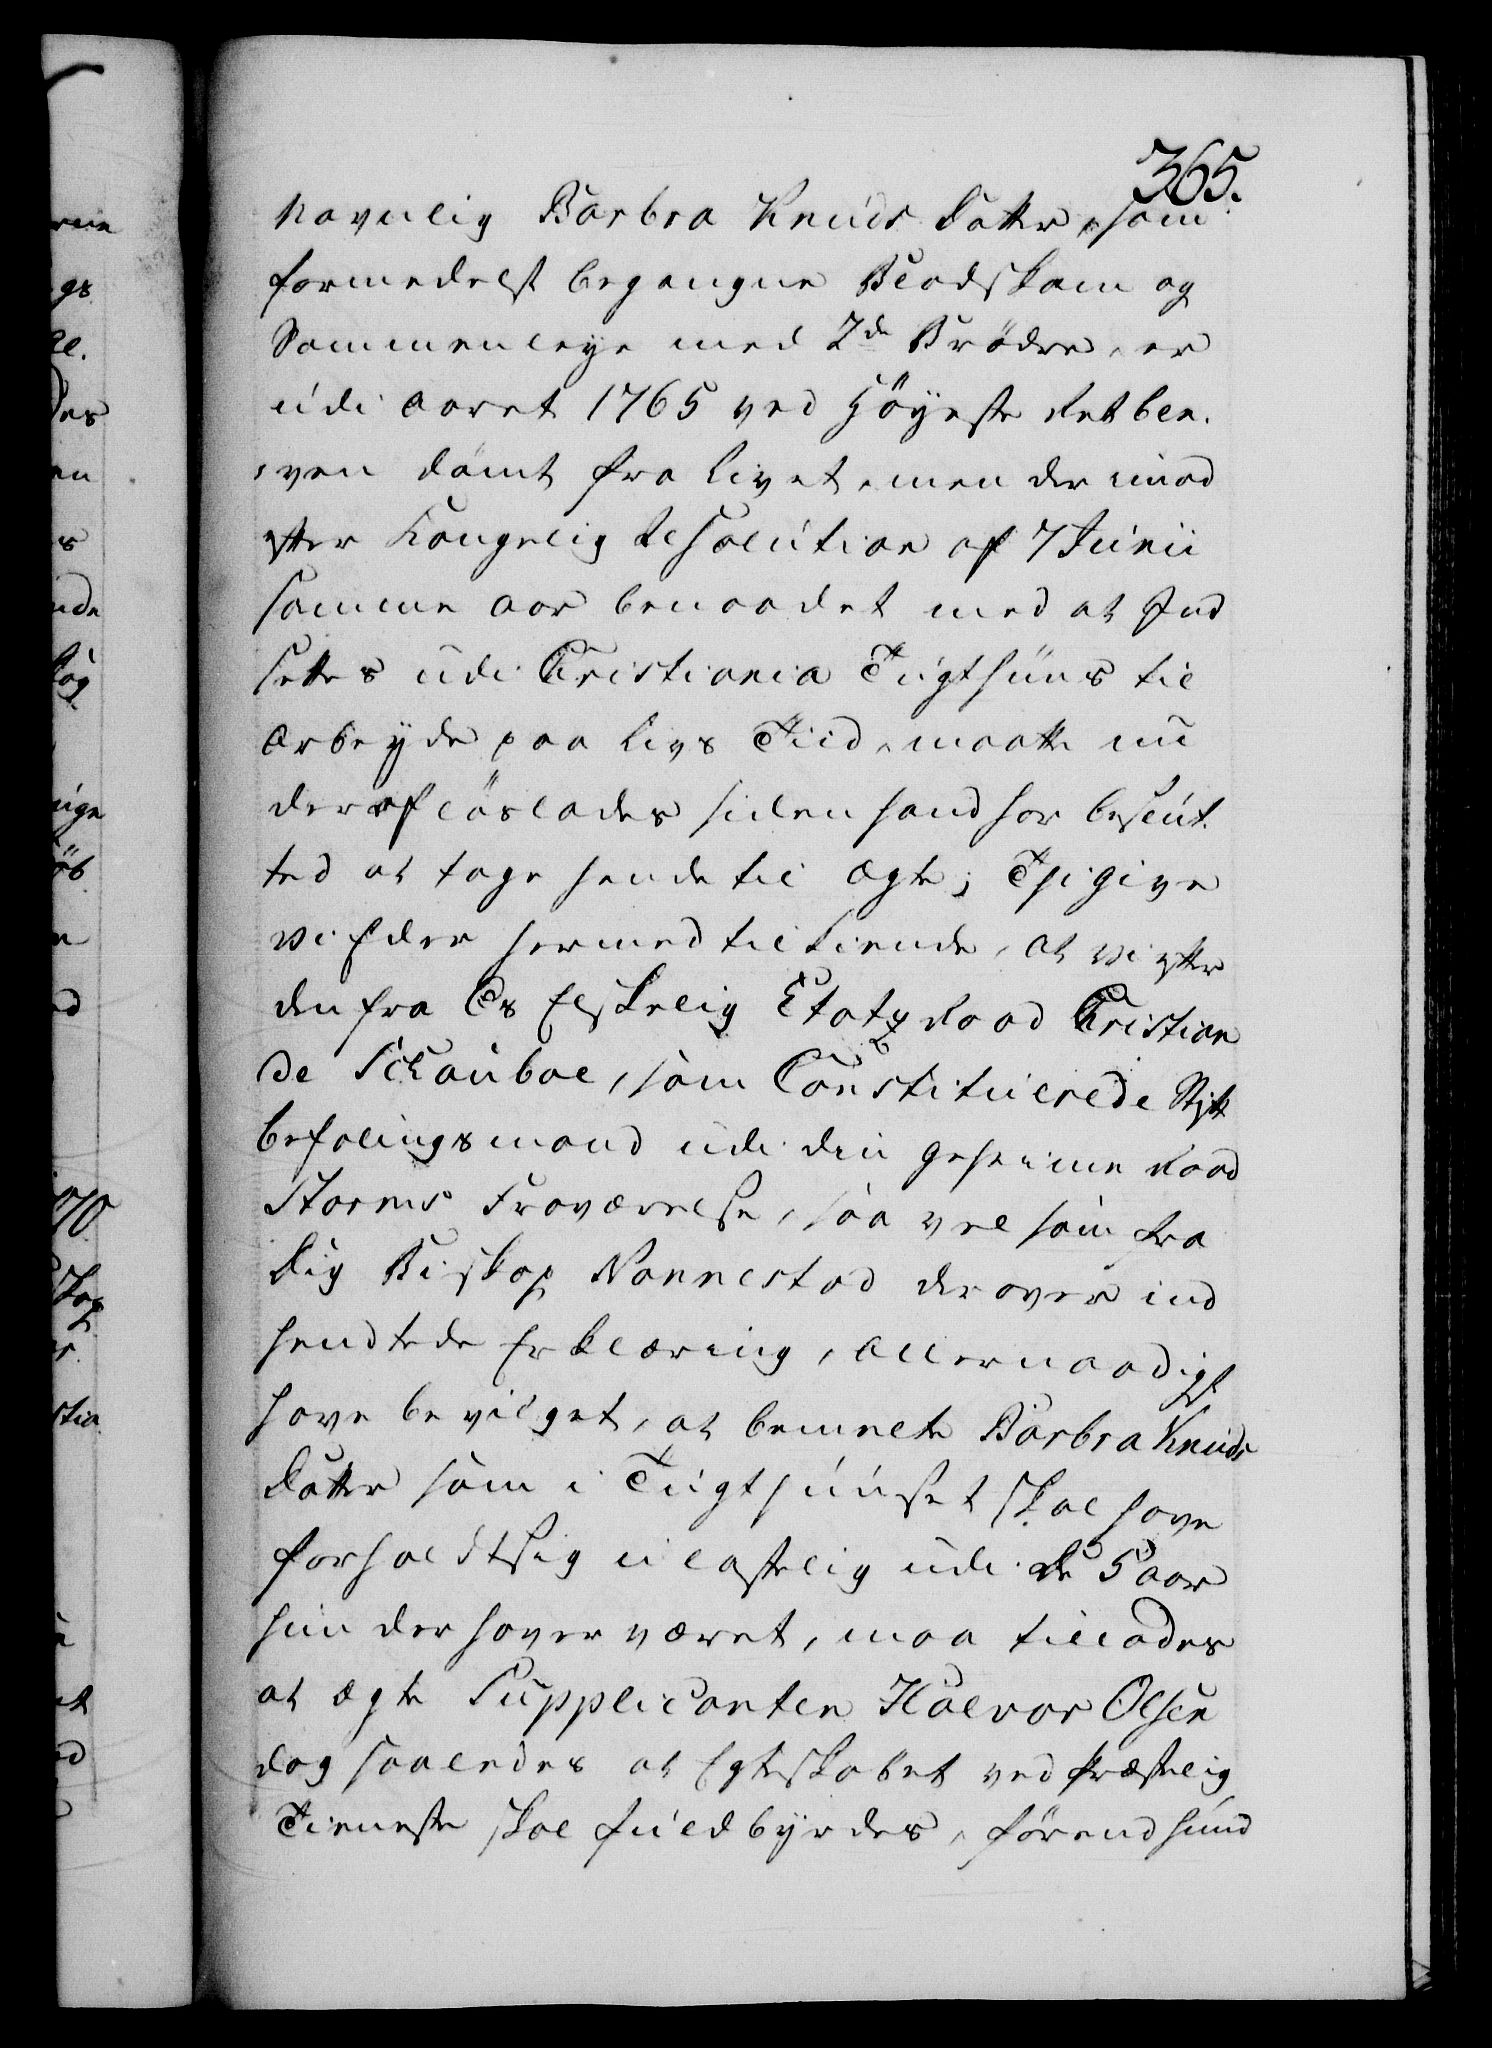 365.
navnlig Barbra Knuds Datter, som
formedelst begangne Blodskam og
Sammenleye med 2de Brödre, er
udi Aaret 1765 ved Höyeste Ret ble-
ven dömt fra Livet, men der imod
efter Kongelig Resolution af 7 Junii
samme Aar benaadet med at Ind
settes udi Christiania Tugthuus til
Arbeyde paa Livs Tiid, maatte nu
deraf löslades siden hand har beslut-
ted at tage hende til Ægte; Thi give
Vi Eder hermed tilkiende, at Vi efter
den fra Os Elskelig Etatz Raad Christian
de Schouboe, som Constituerede Stift
befalingsmand udi din Geheime Raad
Storms Fraværelse, saa vel som fra
Dig Biskop Nannestad derover ind
sendte de Erklæring, allernaadigst
have bevilget, at bemelte Barbra Knuds
Datter som i Tugthuuset skal have
forholdt sig ulastelig udi de 5 Aar
hun der haver været, maa tillades
at ægte Supplicanten Halvor Olsen
dog saaledes at Egteskabet ved Præstelig
Tieneste skal fuldbyrdes, förend hund